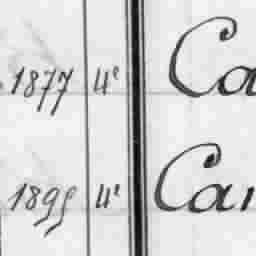 1877 4e Ca
1899 4e Car